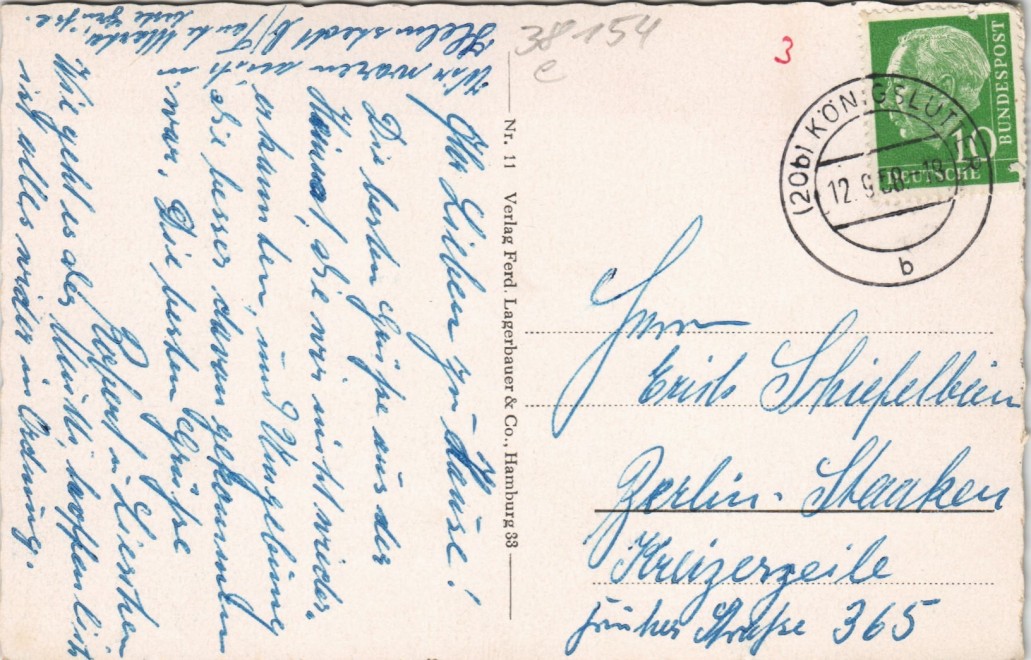 Ihr Lieben zu Hause!
Die besten Grüße aus der
Heimat, die wir nicht wieder
erkannten, und Umgebung
die besser davon gekommen
war. Die besten Grüße
Robert u. Lieschen
Wie geht es der Mutti, hoffentlich
ist alles wieder in Ordnung.
Wir waren auch in
Helmstedt b/ Tante Martha
38 154
e
3
Nr. 11 Verlag Ferd. Lagerbauer & Co., Hamburg 33
DEUTSCHE
BUNDESPOST
10
(20b) KÖNIGSLUT
12.9.58.-18
b
Herrn
Erich Schiefelbein
Berlin-Staaken
Kreizerzeile
früher Straße 365